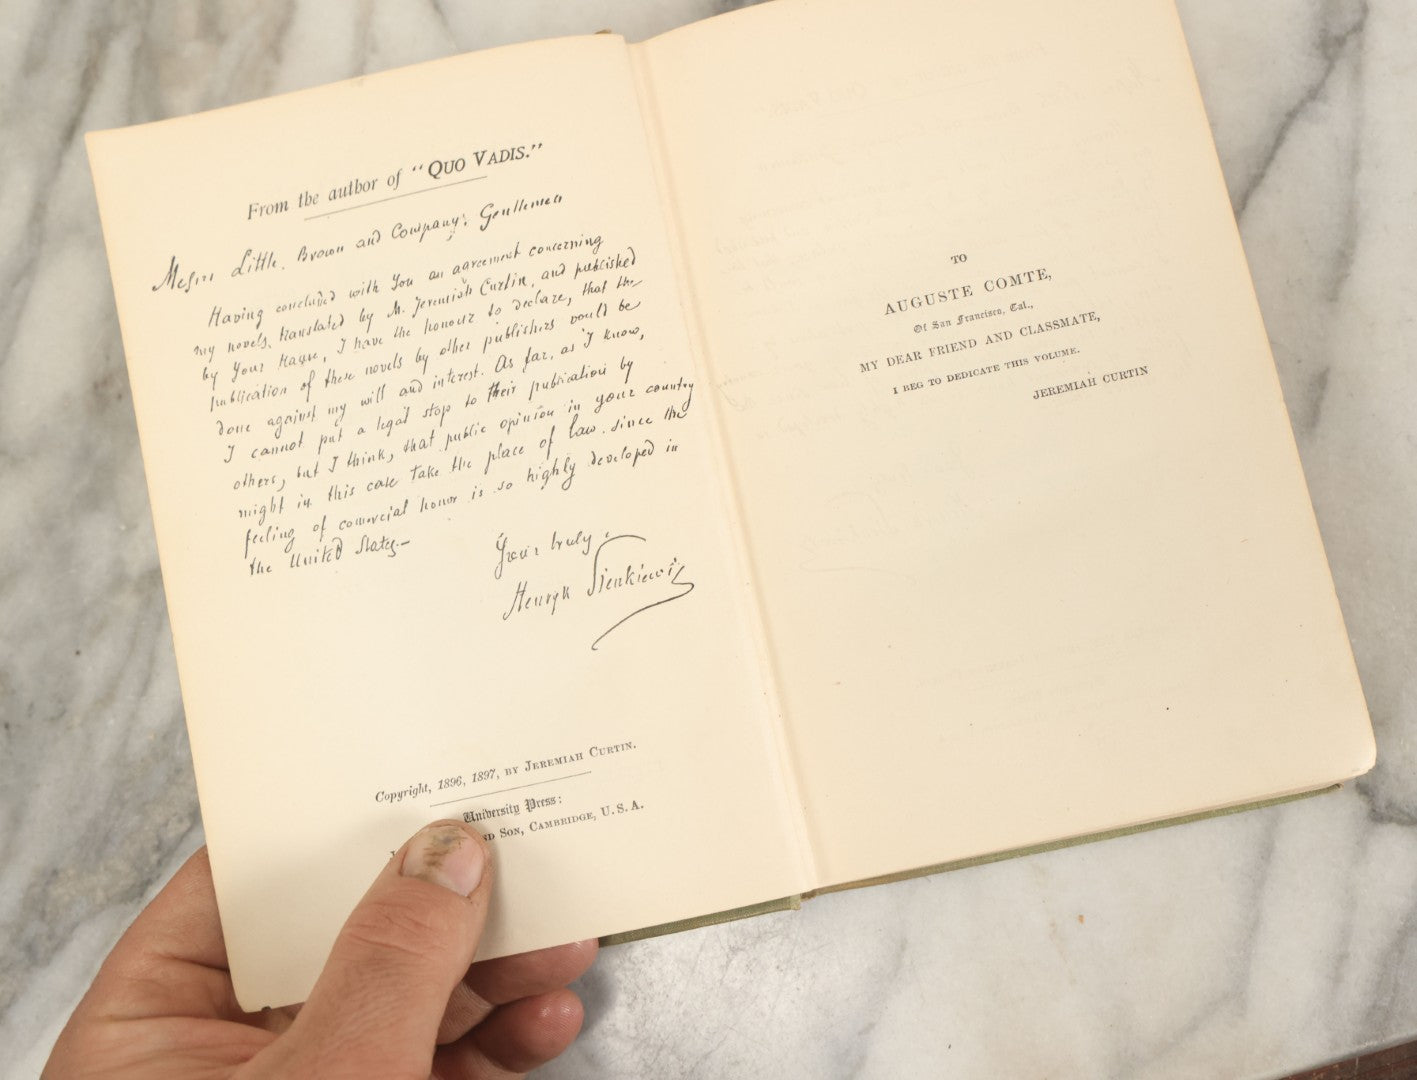 From the author of "QUO VADIS."
Messrs Little. Brown and Company; Gentlemen
Having concluded with You an agreement concerning
my novels, translated by M. Jeremiah Curtin, and published
by Your House, I have the honour to declare, that the
publication of these novels by other publishers would be
done against my will and interest. As far, as I know,
I cannot put a legal stop to their publication by
others, but I think, that public opinion in your country
might in this case take the place of law. since the
feeling of comercial honor is so highly developed in
the United States—
Yours truly.
Henryk Sienkiewicz
Copyright, 1896, 1897, BY JEREMIAH CURTIN.
University Press:
SON, CAMBRIDGE, U. S. A.
TO
AUGUSTE COMTE,
Of San Francisco, Cal.,
MY DEAR FRIEND AND CLASSMATE,
I BEG TO DEDICATE THIS VOLUME.
JEREMIAH CURTIN